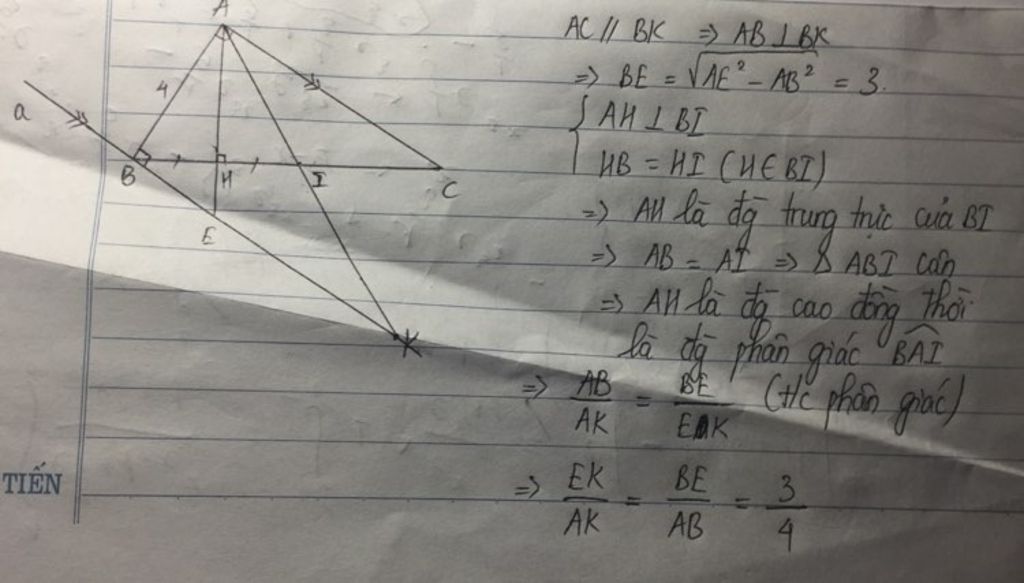 A
4
a
B
H
I
C
E
K
AC // BK ⇒ AB ⊥ BK
⇒ BE = √(AE² − AB²) = 3.
{ AH ⊥ BI
HB = HI (H ∈ BI)
⇒ AH là đg trung trực của BI
⇒ AB = AI ⇒ Δ ABI cân
⇒ AH là đg cao đồng thời
là đg phân giác BAI
⇒ AB/AK = BE/EK (t/c phân giác)
⇒ EK/AK = BE/AB = 3/4
TIẾN